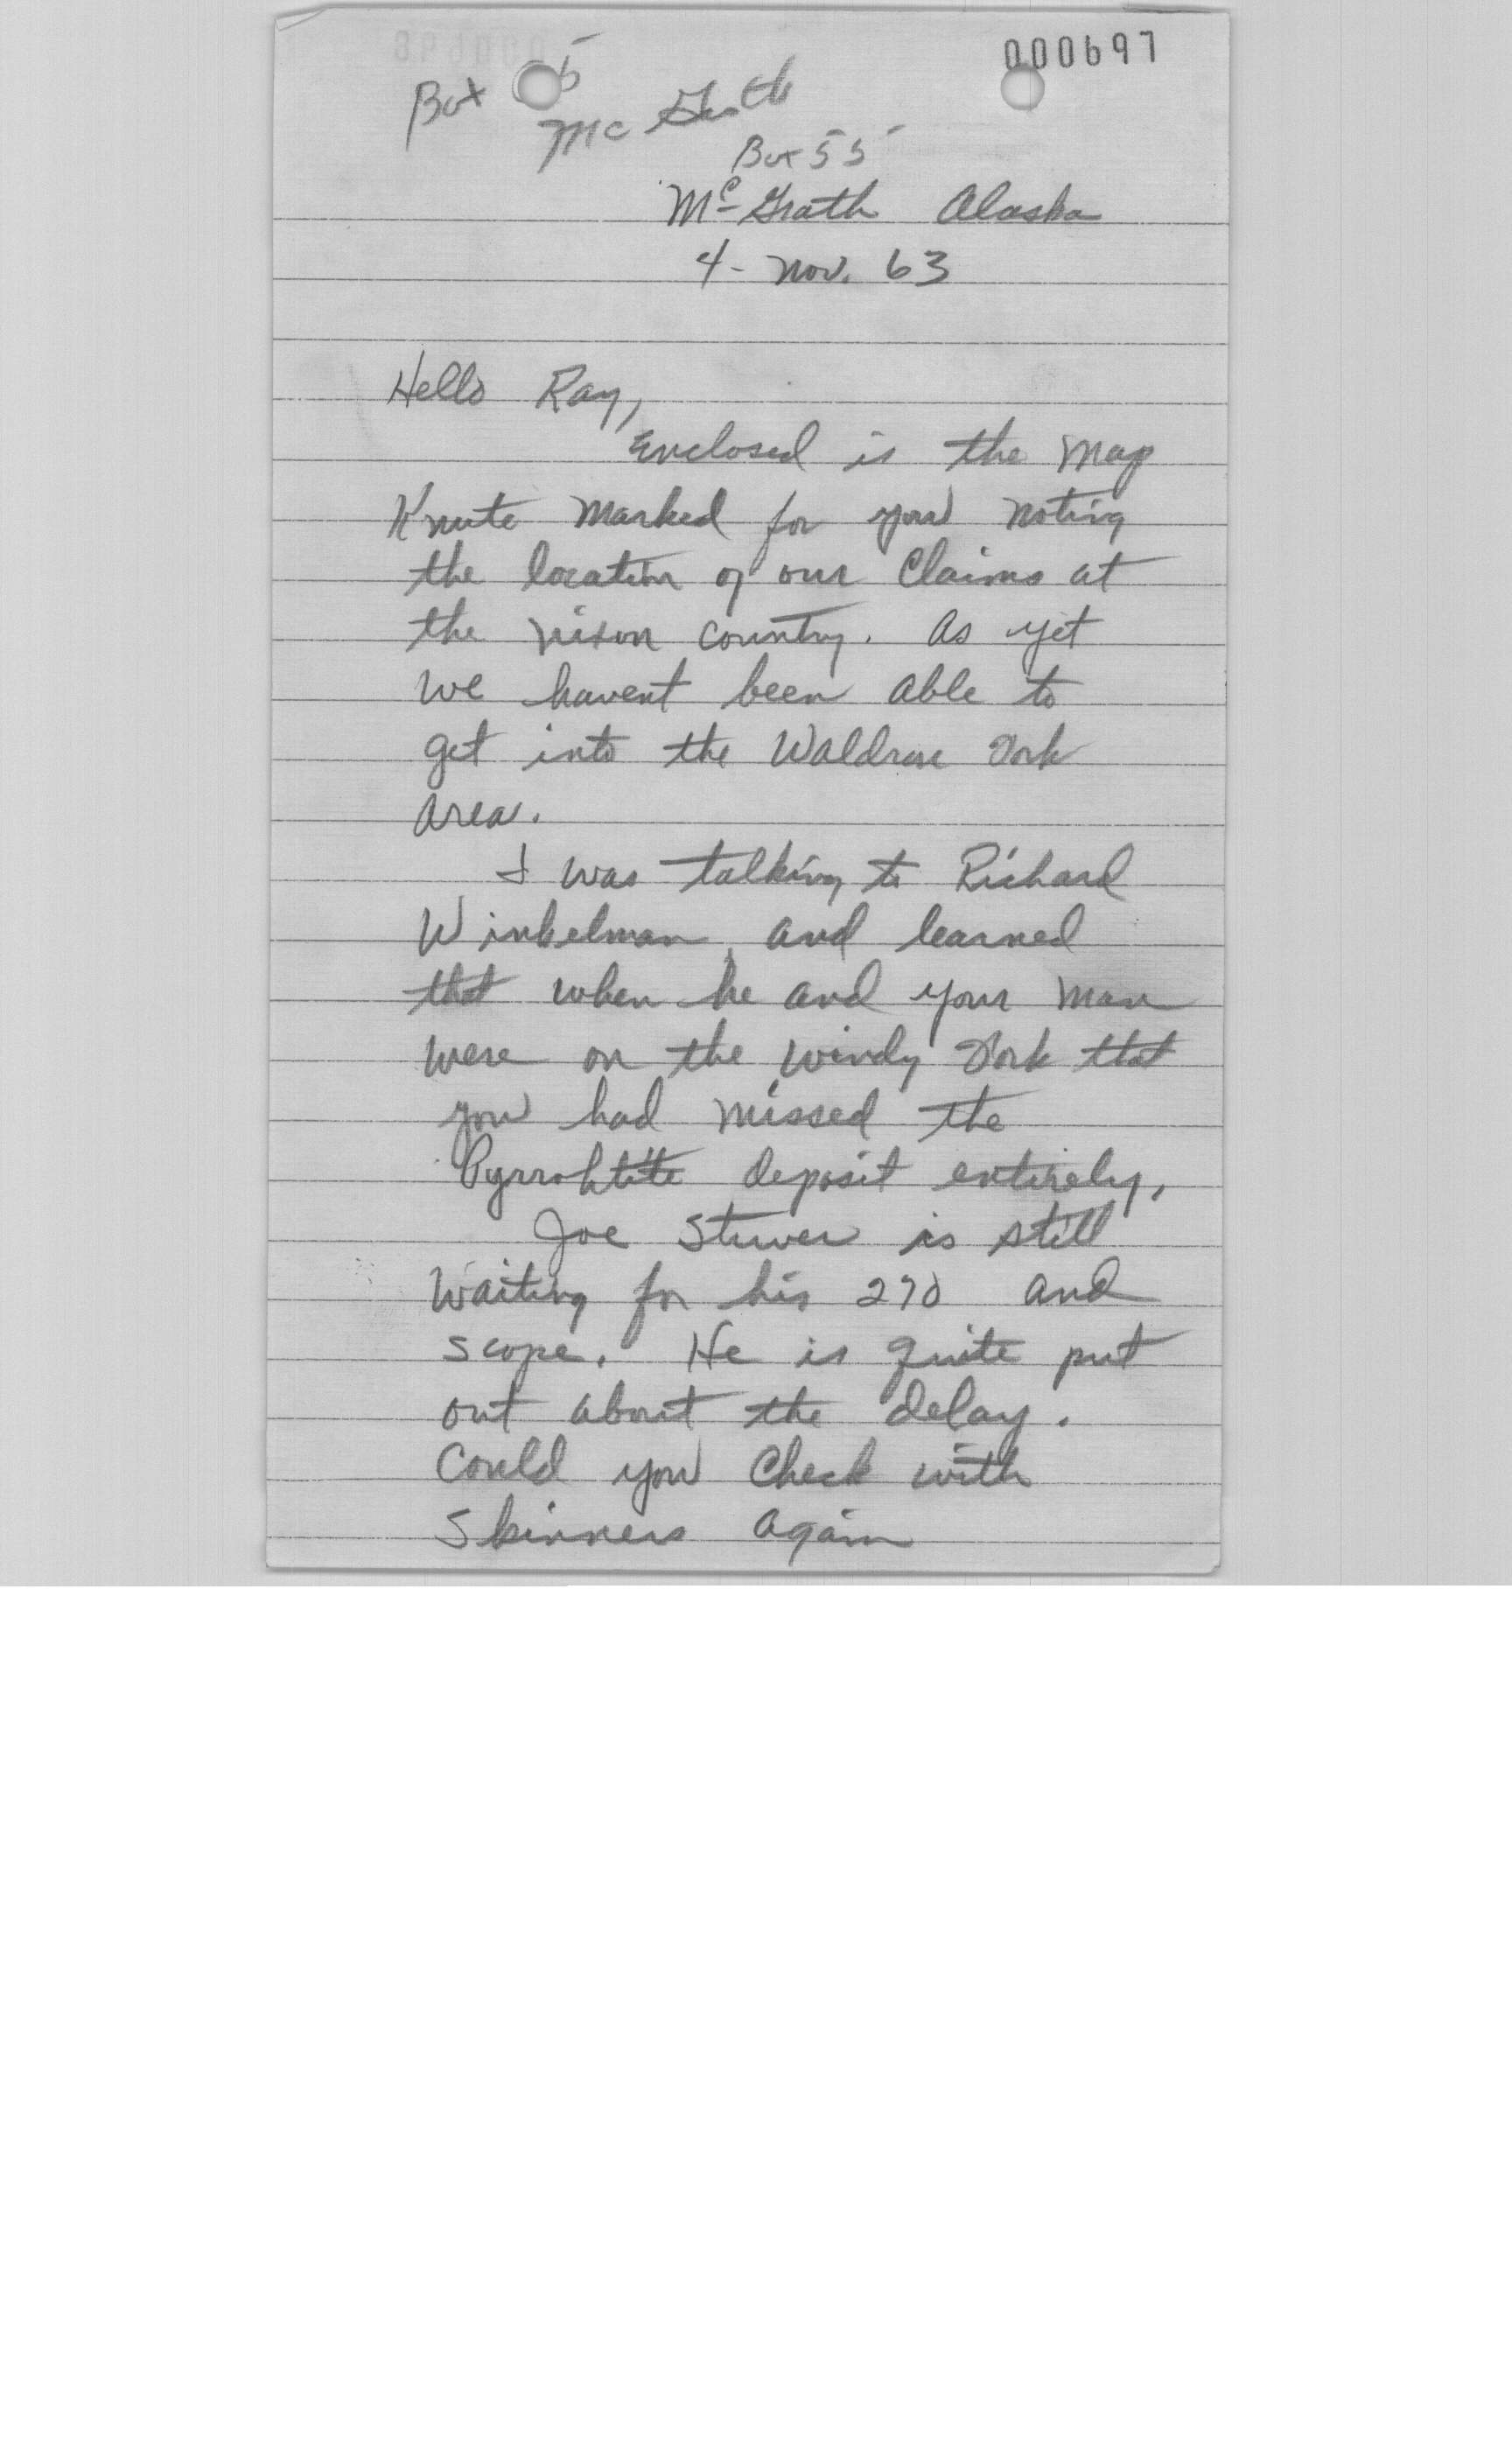 000697
Box 55
McGrath
Box 55
McGrath Alaska
4- Nov. 63
Hello Ray,
Enclosed is the map
Knute marked for you noting
the location of our Claims at
the nixon country. As yet
we havent been able to
get into the Waldrow Fork
area.
I was talking to Richard
Winkelman, and learned
that when he and your man
were on the windy Fork that
you had missed the
Pyrrohtite deposit entirely.
Joe Stuver is still
waiting for his 270 and
scope. He is quite put
out about the delay.
Could you Check with
Skinners again